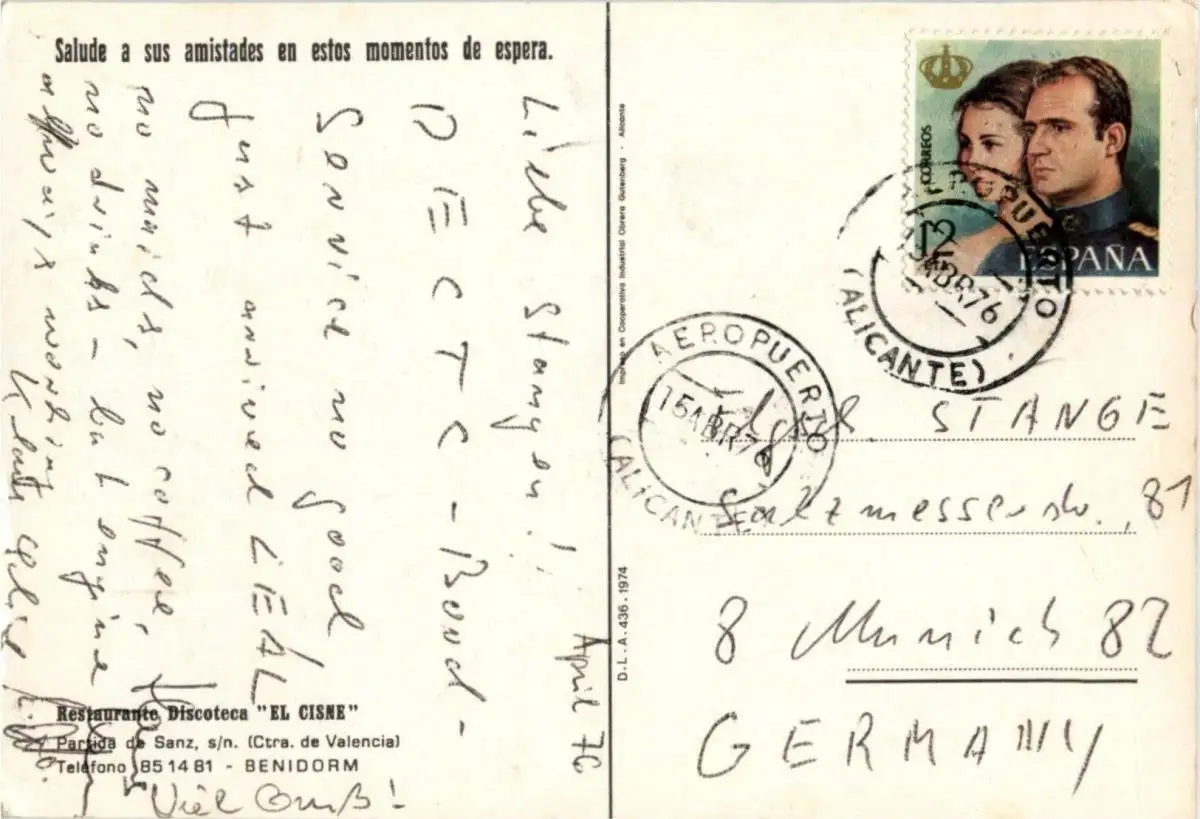 Salude a sus amistades en estos momentos de espera.
Liebe Stangen!
April 76
DECTC-Bond-
Service no good
just arrived LEAL
no maids, no coffee,
no drinks - but engine
always working
Restaurante Discoteca "EL CISNE"
Partida de Sanz, s/n. (Ctra. de Valencia)
Teléfono 85 14 81 - BENIDORM
Viel
Impreso en Cooperativa Industrial Obrera Gutenberg - Alicante
D. L. A. 436 - 1974
CORREOS
12
ESPAÑA
AEROPUERTO
ABR 76
(ALICANTE)
AEROPUERTO
15 ABR 76
(ALICANTE)
STANGE
81
8 Munich 82
GERMANY